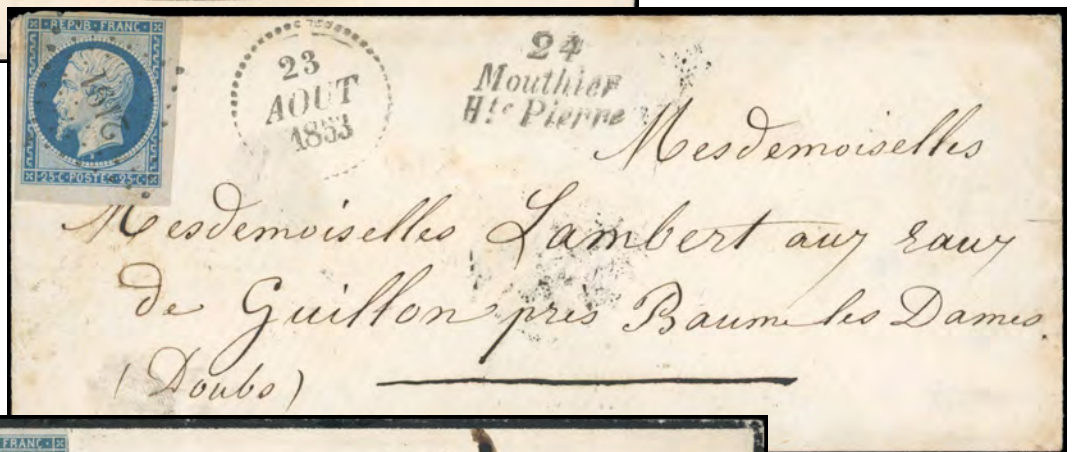 REPUB·FRANC·
25·C·POSTES·25·C
23
AOUT
1853
24
Mouthier
H.te Pierre
Mesdemoiselles
Mesdemoiselles Lambert aux eaux
de Guillon près Baume les Dames
(Doubs)
FRANC·